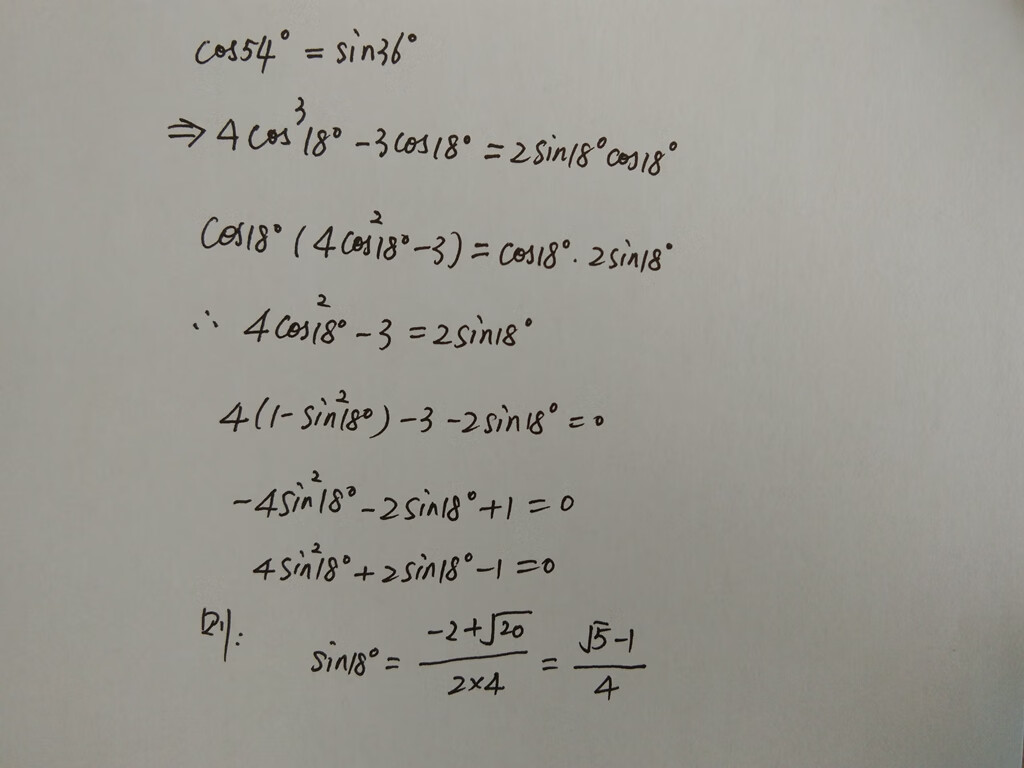 cos54° = sin36°
⇒ 4cos³18° - 3cos18° = 2sin18°cos18°
cos18° (4cos²18° - 3) = cos18° · 2sin18°
∴ 4cos²18° - 3 = 2sin18°
4(1 - sin²18°) - 3 - 2sin18° = 0
-4sin²18° - 2sin18° + 1 = 0
4sin²18° + 2sin18° - 1 = 0
则: sin18° = (-2+√20)/(2×4) = (√5-1)/4